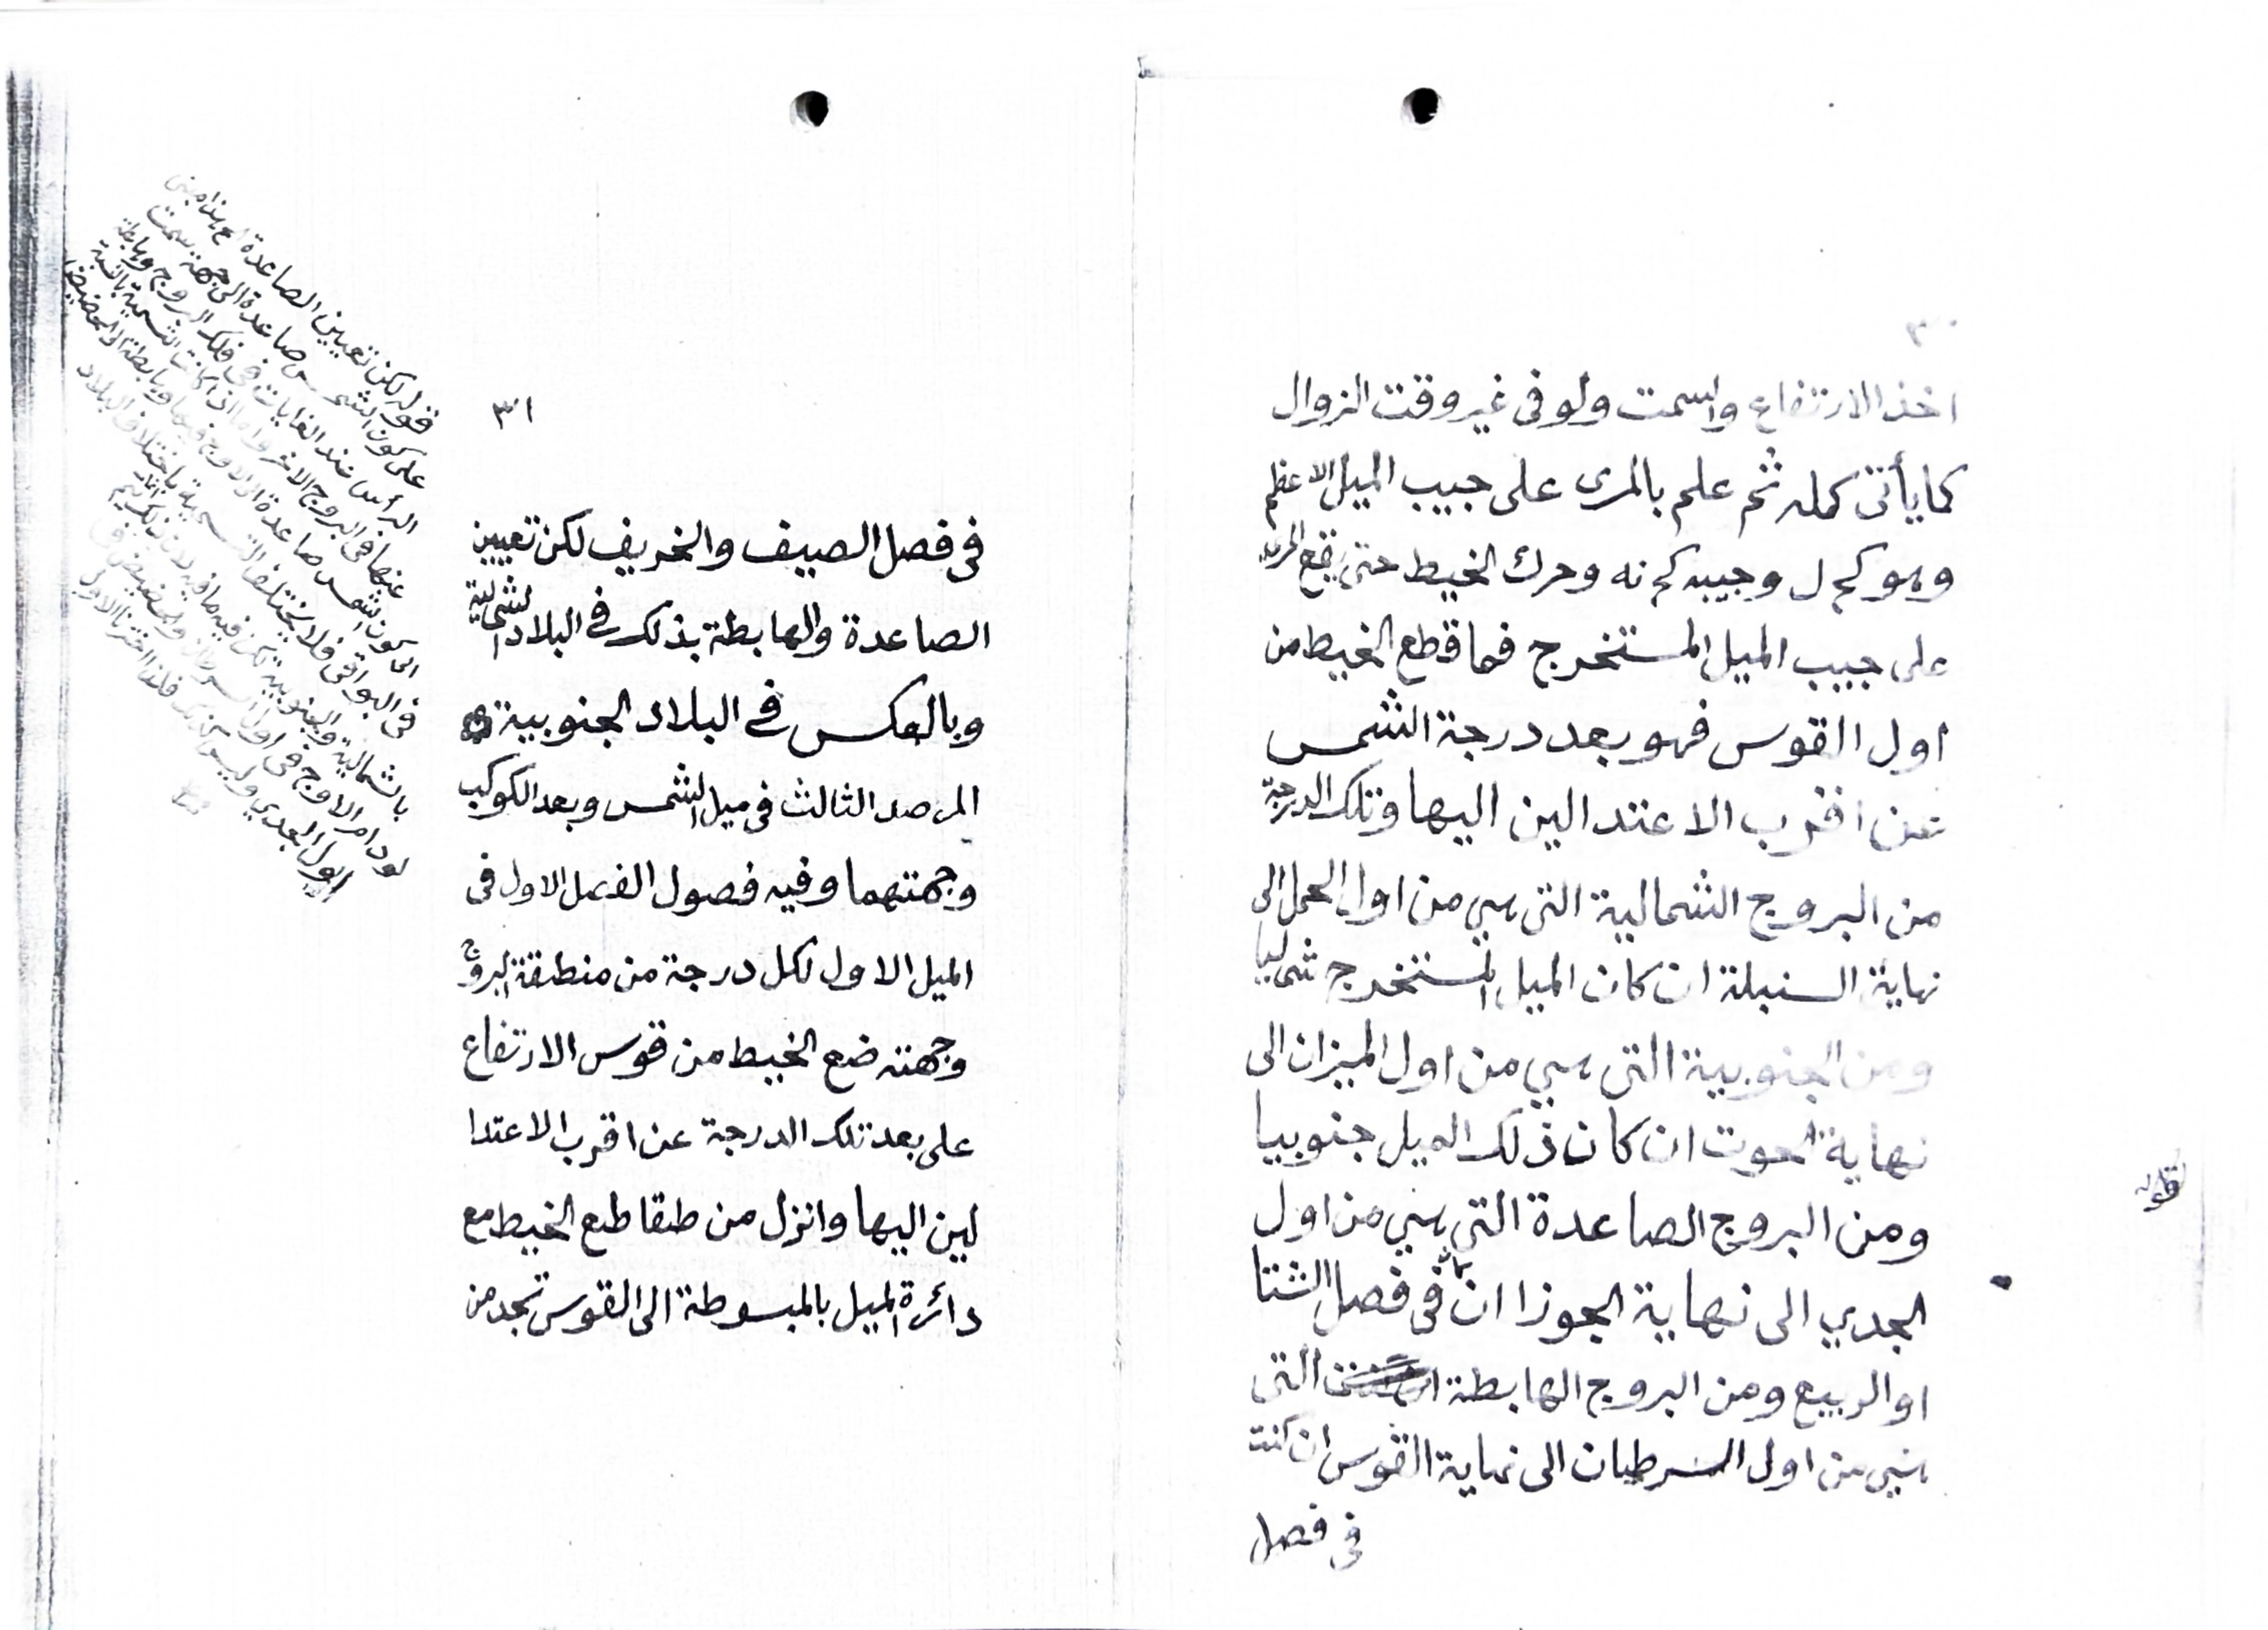 ٣٠
اخذ الارتفاع والسمت ولو فى غير وقت الزوال
كما يأتى كمله ثم علم بالمرى على جيب الميل الاعظم
وهو كج ل وجيبه كج نه وحرك الخيط حتى يقع المرى
على جيب الميل المستخرج فما قطع الخيط من
اول القوس فهو بعد درجة الشمس
عن اقرب الاعتدالين اليها وتلك الدرجة
من البروج الشمالية التى هي من اول الحمل الى
نهاية السنبلة ان كان الميل المستخرج شماليا
ومن الجنوبية التى هي من اول الميزان الى
نهاية الحوت ان كان ذلك الميل جنوبيا
ومن البروج الصاعدة التي هي من اول
الجدي الى نهاية الجوزا ان كانت فى فصل الشتا
او الربيع ومن البروج الهابطة التى
هي من اول السرطان الى نهاية القوس ان كانت
فى فصل
قوله
٣١
فى فصل الصيف والخريف لكن تعيين
الصاعدة والهابطة بذلك فى البلاد الشمالية
وبالعكس فى البلاد الجنوبية
المرصد الثالث فى ميل الشمس وبعد الكوكب
وجهتهما وفيه فصول الفصل الاول فى
الميل الاول لكل درجة من منطقة البروج
وجهته ضع الخيط من قوس الارتفاع
على بعد تلك الدرجة عن اقرب الاعتدا
لين اليها وانزل من طقاطع الخيط مع
دائرة الميل بالمبسوطة الى القوس تجد من
قوله لكن تعيين الصاعدة الخ هذا مبنى
على كون الشمس صاعدة الى جهة سمت
الرأس عند الغايات فى فلك البروج وهابطة
عنها فى البروج الاخر واما اذا كانت التسمية بالنسبة
الى كون الشمس صاعدة الى الاوج فيها وهابطة الى الحضيض
فى البواقى فلا يختلف التسمية باختلاف البلاد
بالشمالية والجنوبية لكن فيه ما فيه
لو دام الاوج فى اول السرطان والحضيض فى
اول الجدي وليس كذلك فلذا اخترنا الاول